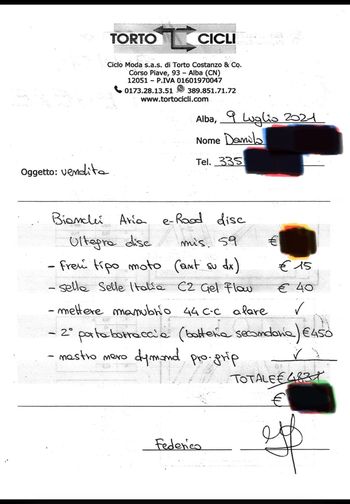 TORTO CICLI
Ciclo Moda s.a.s. di Torto Costanzo & Co.
Corso Piave, 93 – Alba (CN)
12051 – P.IVA 01601970047
0173.28.13.51 389.851.71.72
www.tortocicli.com
Alba, 9 Luglio 2021
Nome Danilo
Tel. 335
Oggetto: vendita
Bianchi Aria e-Road disc
Ultegra disc mis. 59 €
- freni tipo moto (ant su dx) € 15
- sella Selle Italia C2 Gel Flow € 40
- mettere manubrio 44 C-C alare ✓
- 2° portaborraccia (batteria secondaria) € 450
- nastro nero dymond pro-grip ✓
TOTALE €
€
Federico